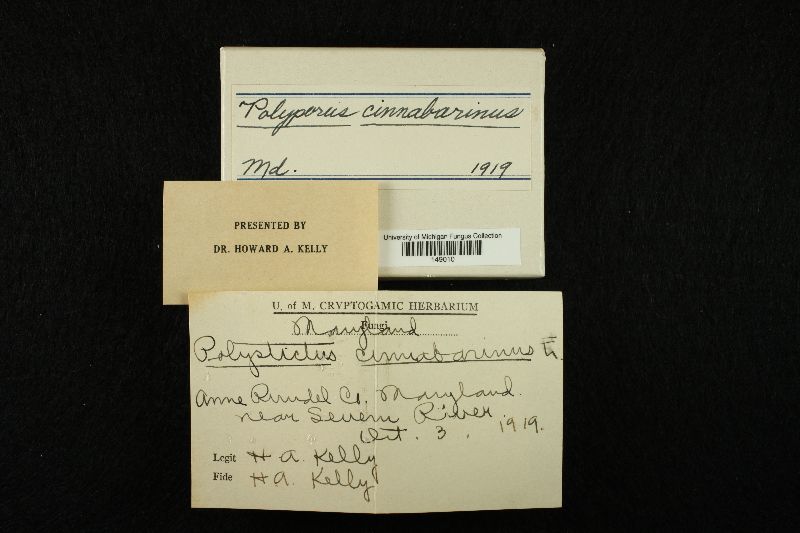 Polyporus cinnabarinus
Md. 1919
PRESENTED BY
DR. HOWARD A. KELLY
University of Michigan Fungus Collection
149010
U. of M. CRYPTOGAMIC HERBARIUM
Fungi
Maryland
Polystictus cinnabarinus Fr.
Anne Arundel Co. Maryland.
near Severn River
Oct. 3, 1919.
Legit H A. Kelly
Fide H A. Kelly